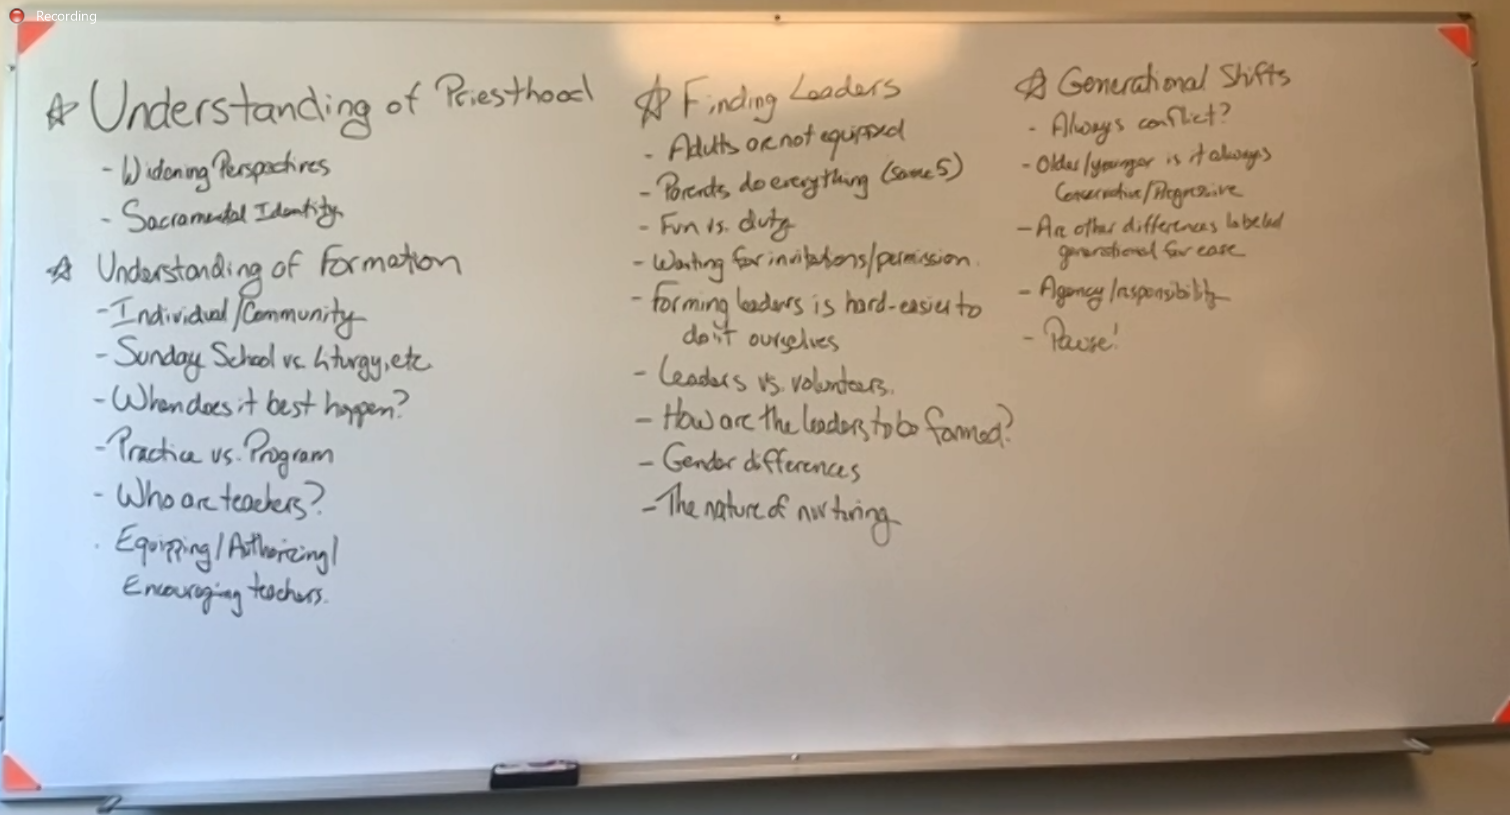 Recording
☆ Understanding of Priesthood
- Widening Perspectives
- Sacramental Identity
☆ Understanding of Formation
- Individual/Community
- Sunday School vs. Liturgy, etc
- When does it best happen?
- Practice vs. Program
- Who are teachers?
- Equipping/Authorizing/
Encouraging teachers.
☆ Finding Leaders
- Adults are not equipped
- Parents do everything (same 5)
- Fun vs. duty
- Waiting for invitations/permission.
- Forming leaders is hard-easier to
do it ourselves
- Leaders vs. volunteers.
- How are the leaders to be formed?
- Gender differences
- The nature of nurturing
☆ Generational Shifts
- Always conflict?
- Older/younger is it always
Conservative/Progressive
- Are other differences labeled
generational for ease
- Agency/responsibility
- Pause!